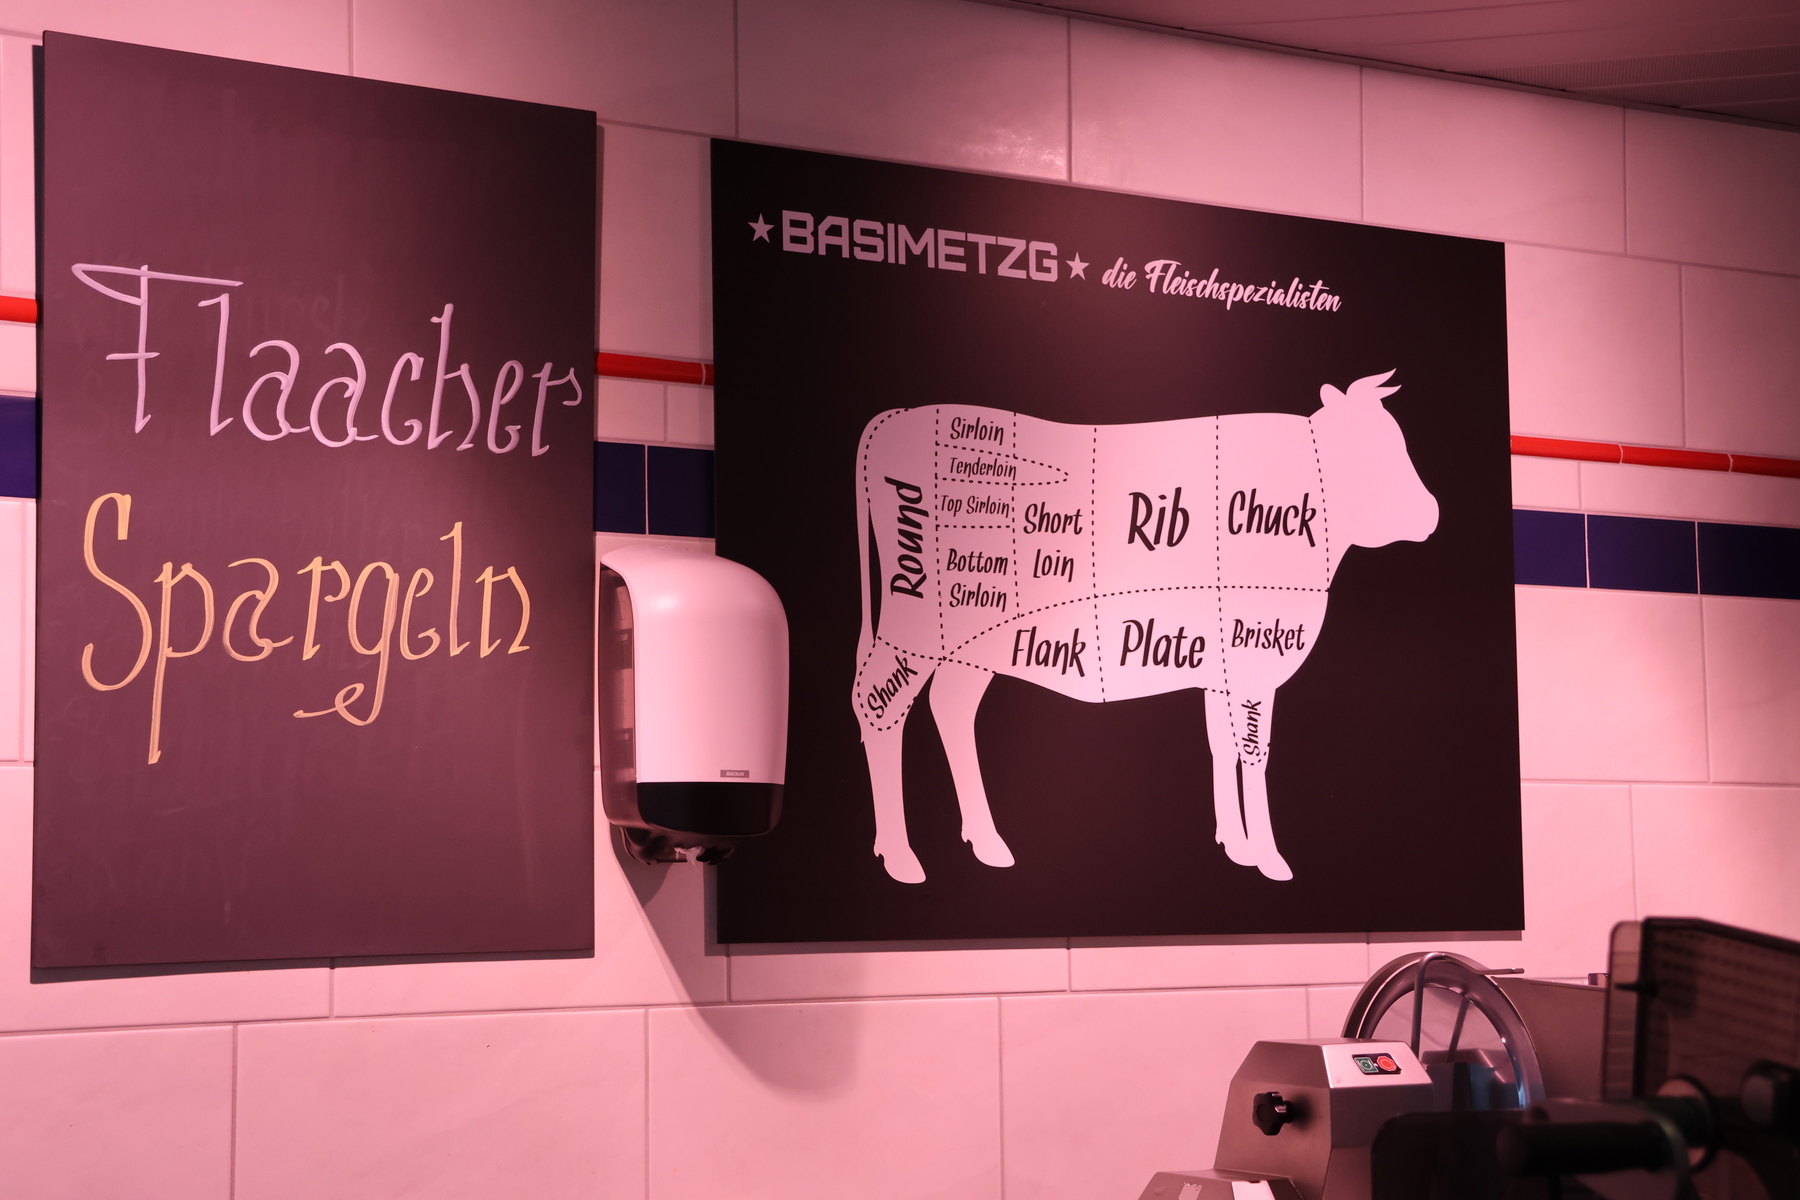 Flaacher
Spargeln
BASIMETZG die Fleischspezialisten
Sirloin
Tenderloin
Top Sirloin
Bottom
Sirloin
Round
Short
Loin
Rib
Chuck
Flank
Plate
Brisket
Shank
Shank